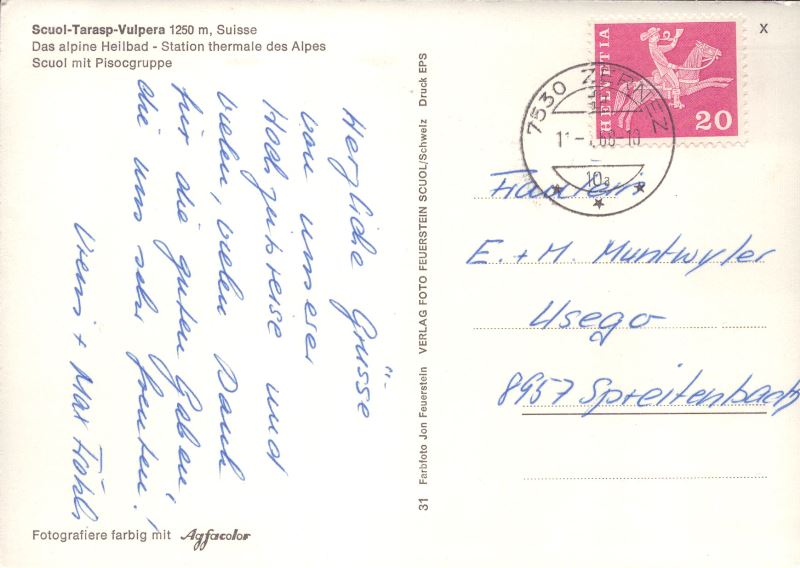 Scuol-Tarasp-Vulpera 1250 m, Suisse
Das alpine Heilbad - Station thermale des Alpes
Scuol mit Pisocgruppe
Herzliche Grüsse
von unserer
Hochzeitsreise und
vielen, vielen Dank
für die guten Gaben,
die uns sehr freuten!
+ Max
Fotografiere farbig mit Agfacolor
31 Farbfoto Jon Feuerstein VERLAG FOTO FEUERSTEIN SCUOL/Schweiz Druck EPS
x
HELVETIA
20
7530 ZERNEZ
10a
E. + M. Muntwyler
Usego
8957 Spreitenbach